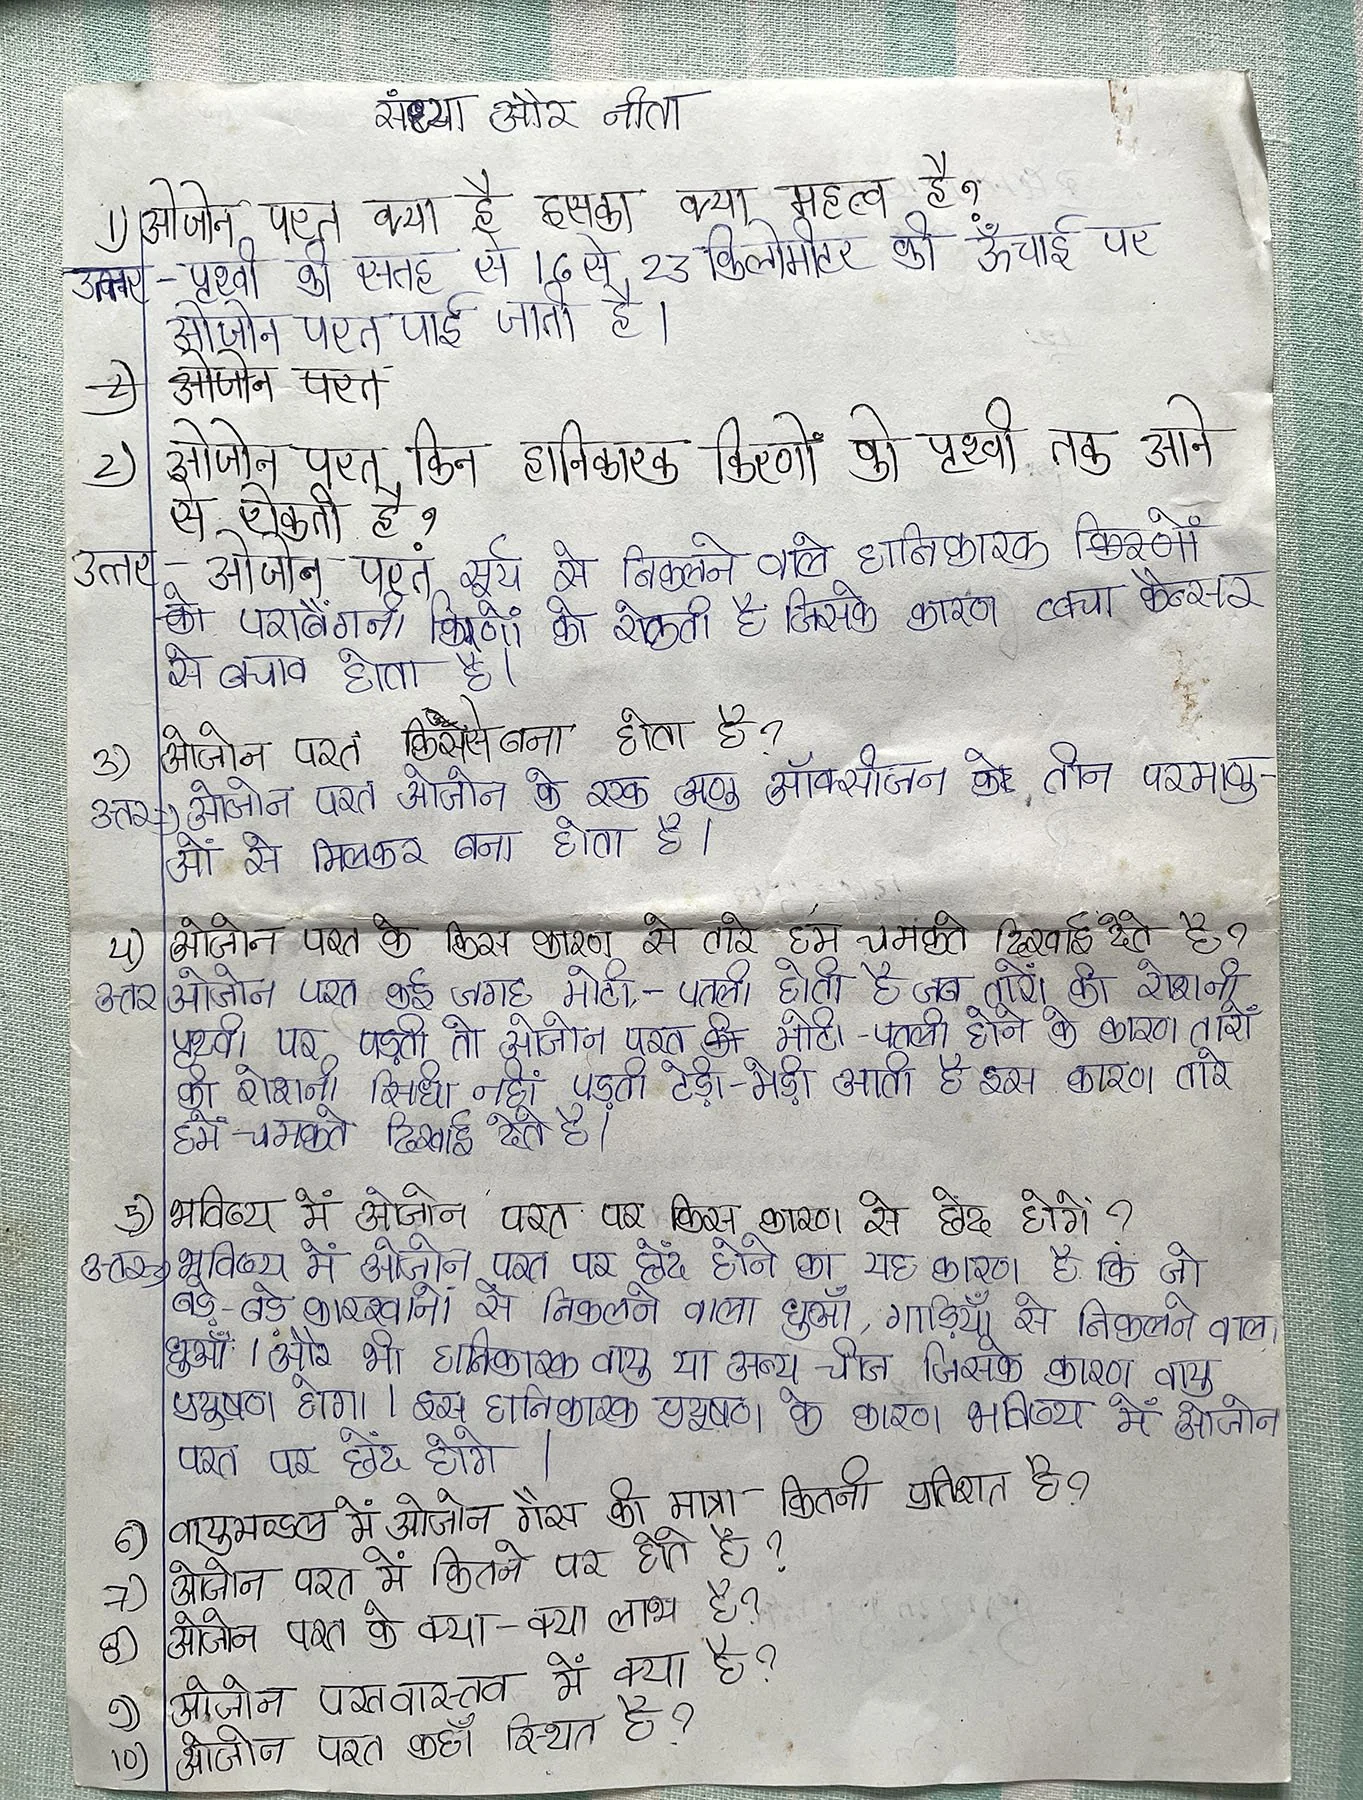 संध्या और नीता
1) ओजोन परत क्या है इसका क्या महत्व है?
उत्तर - पृथ्वी की सतह से 16 से 23 किलोमीटर की ऊँचाई पर
ओजोन परत पाई जाती है।
2) ओजोन परत
2) ओजोन परत किन हानिकारक किरणों को पृथ्वी तक आने
से रोकती है?
उत्तर - ओजोन परत सूर्य से निकलने वाले हानिकारक किरणों
को पराबैंगनी किरणों को रोकती है जिसके कारण त्वचा कैन्सर
से बचाव होता है।
3) ओजोन परत किससे बना होता है?
उत्तर → ओजोन परत ओजोन के एक अणु ऑक्सीजन के तीन परमाणु-
ओं से मिलकर बना होता है।
4) ओजोन परत के किस कारण से तारे हमें चमकते दिखाई देते है?
उत्तर ओजोन परत कई जगह मोटी - पतली होती है जब तारों की रोशनी
पृथ्वी पर पड़ती तो ओजोन परत की मोटी - पतली होने के कारण तारों
की रोशनी सिधी नहीं पड़ती टेड़ी - मेड़ी आती है इस कारण तारे
हमें चमकते दिखाई देते है।
5) भविष्य में ओजोन परत पर किस कारण से छेद होगें?
उत्तर → भविष्य में ओजोन परत पर छेद होने का यह कारण है कि जो
बड़े - बड़े कारखानों से निकलने वाला धुआँ, गाड़ियाँ से निकलने वाला
धुआँ। और भी हानिकारक वायु या अन्य चीज जिसके कारण वायु
प्रदुषण होगा। इस हानिकारक प्रदुषण के कारण भविष्य में ओजोन
परत पर छेद होगे।
6) वायुमण्डल में ओजोन गैस की मात्रा कितनी प्रतिशत है?
7) ओजोन परत में कितने पर होते है?
8) ओजोन परत के क्या - क्या लाभ है?
9) ओजोन परत वास्तव में क्या है?
10) ओजोन परत कहाँ स्थित है?